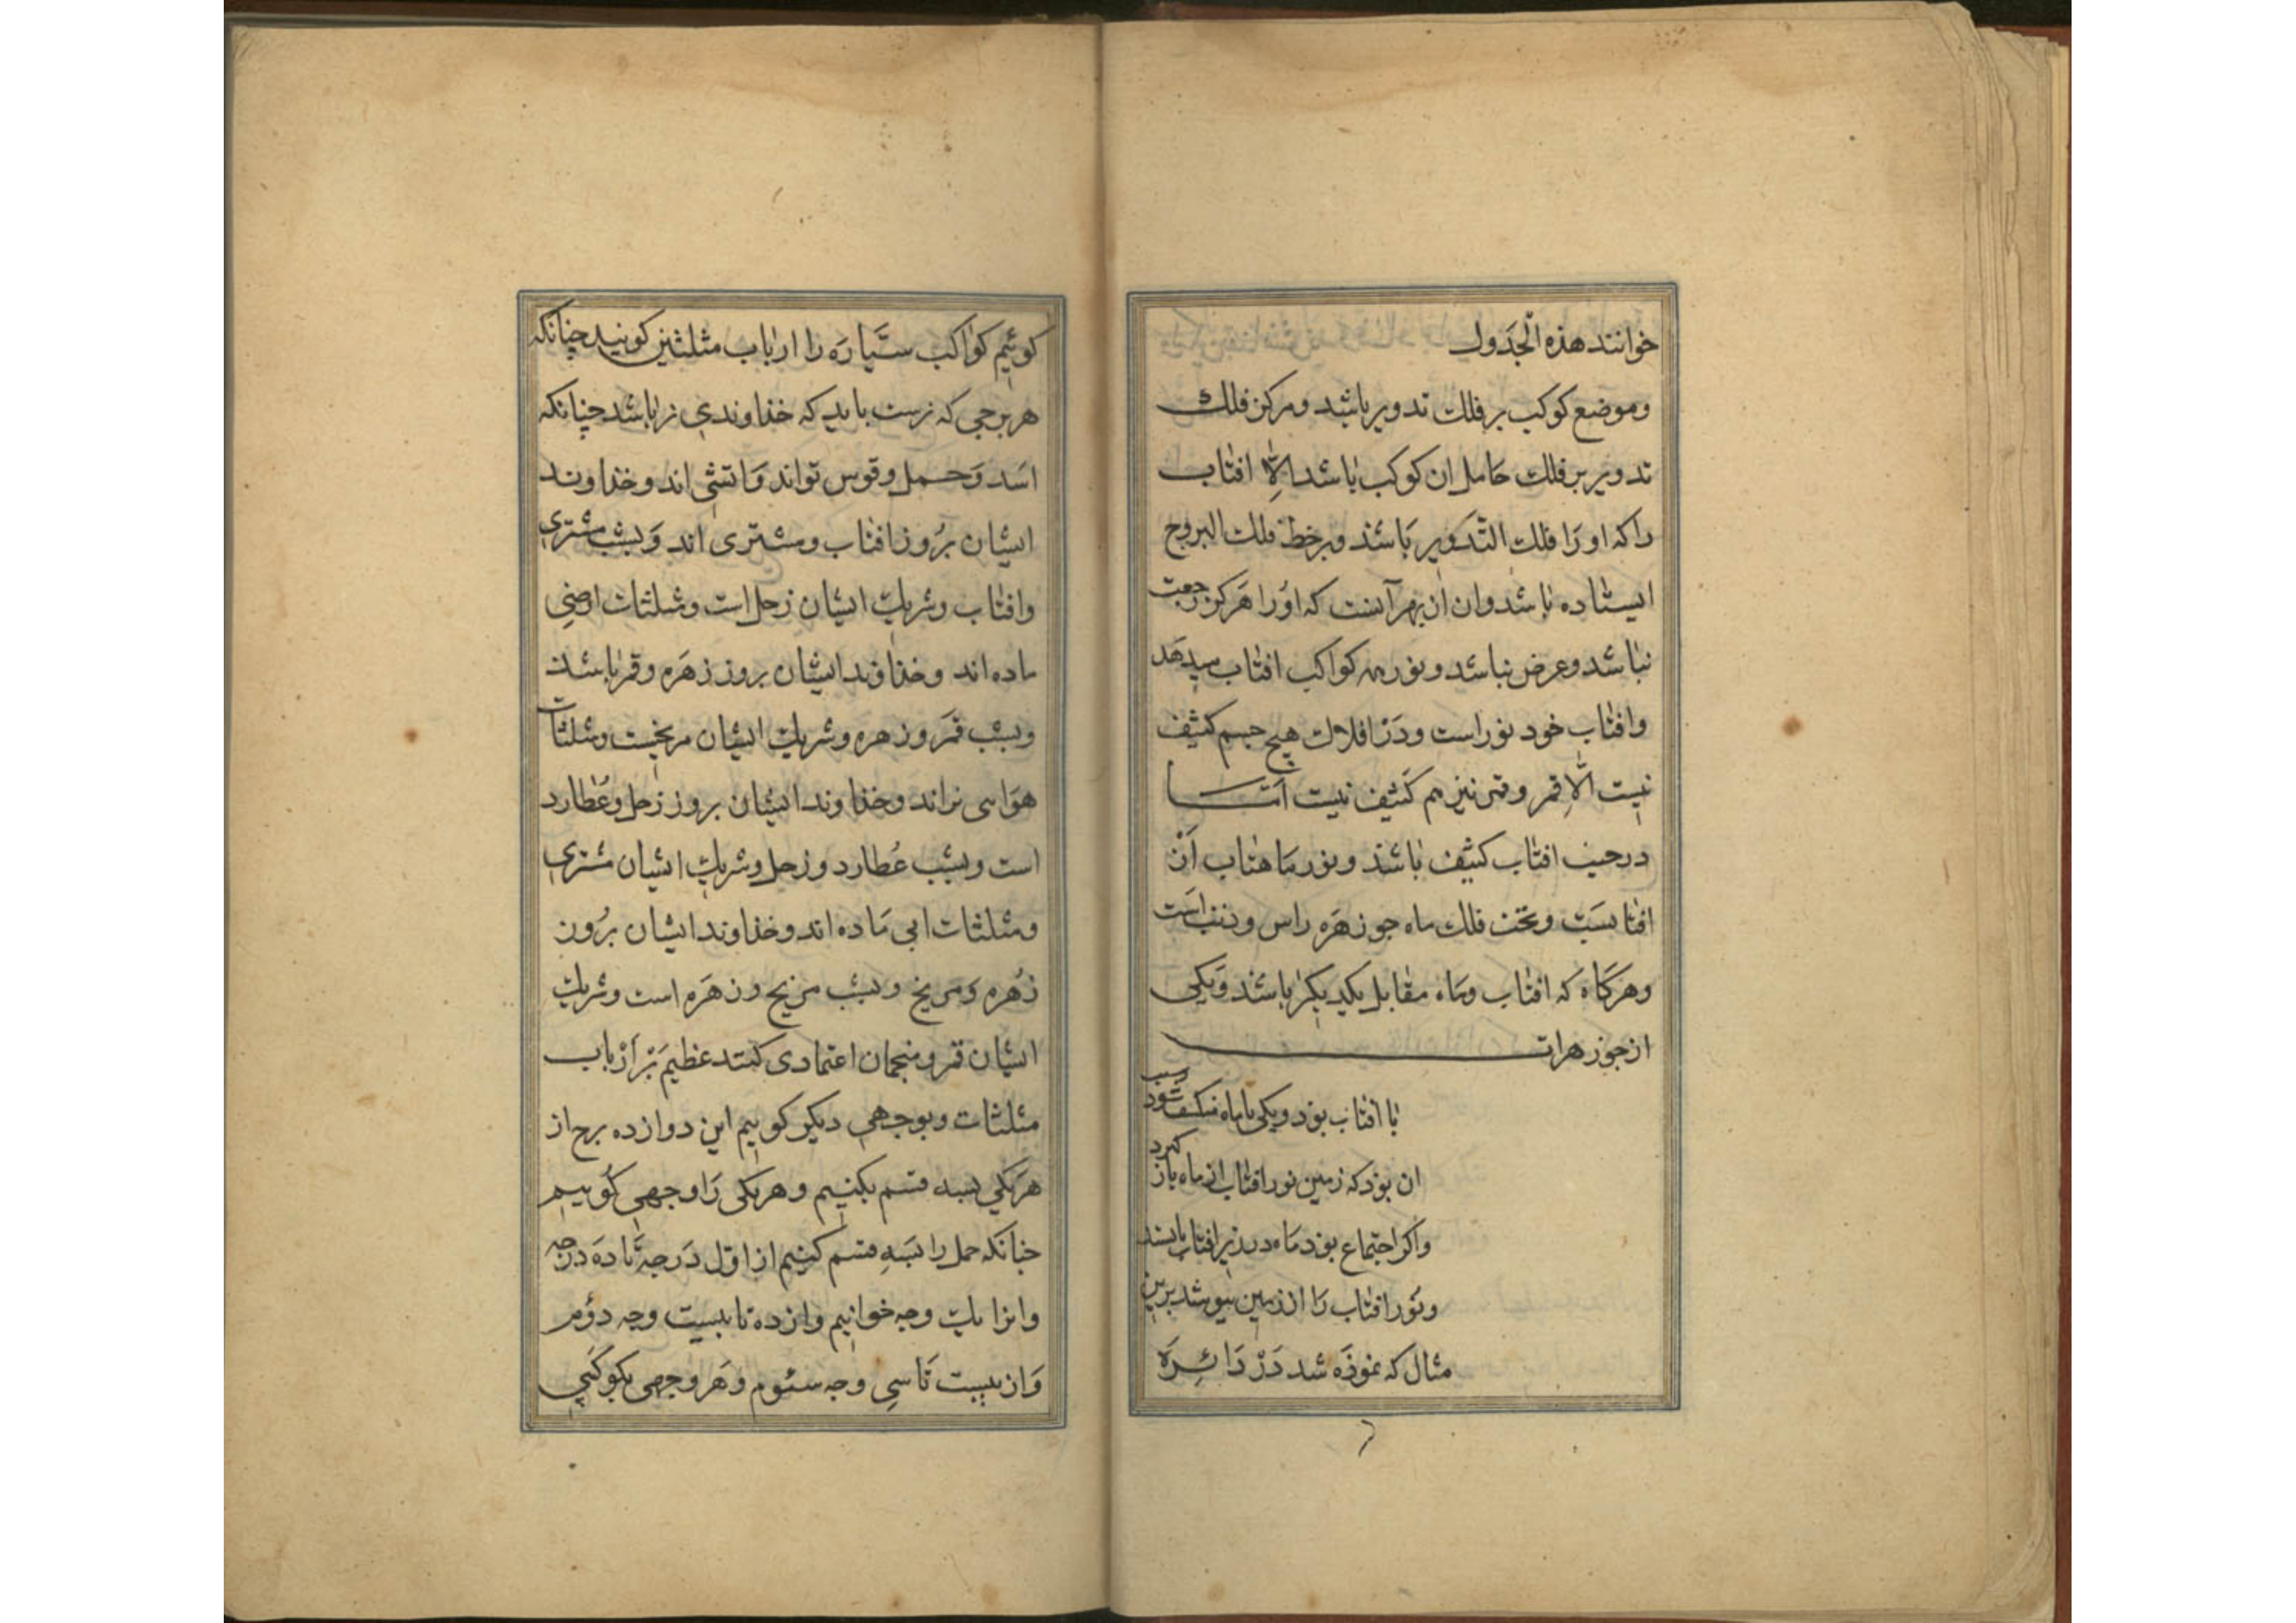 خوانند هذه الجدول
وموضع کوکب بر فلک تدویر باشد ومرکز فلک
تدویر بر فلک حامل ان کوکب باشد الا افتاب
را که او را فلک التدویر باشد وبر خط فلک البروج
ایستاده باشد وان از بهر آنست که اورا هرکز رجعت
نباشد وعرض نباشد ونور بهمه کواکب افتاب میدهد
وافتاب خود نور است ودر افلاک هیچ جسم کثیف
نیست الا قمر وقمر نیز هم کثیف نیست اما
در جنب افتاب کثیف باشد ونور ماهتاب از
افتابست وتحت فلک ماه جوزهره راس وذنب است
وهرکاه که افتاب وماه مقابل یکدیکر باشند ویکی
از جوزهرات
با افتاب بود ویکی با ماه منکسف شود وسبب
ان بود که زمین نور افتاب از ماه باز کیرد
واکر اجتماع بود ماه در زیر افتاب باشد
ونور افتاب را از زمین بپوشد برین
مثال که نموده شد در دائره
کوئیم کواکب سیاره را ارباب مثلثین کویند چنانکه
هر برجی که نرست باید که خداوندی نر باشد چنانکه
اسد وحمل وقوس تواند واتشی اند وخداوند
ایشان بروز افتاب ومشتری اند وبشب مشتری
وافتاب وشریک ایشان زحل است ومثلثات ارضی
ماده اند وخداوند ایشان بروز زهره وقمر باشند
وبشب قمر وزهره وشریک ایشان مریخست ومثلثات
هوایی نر اند وخداوند ایشان بروز زحل وعطارد
است وبشب عطارد وزحل وشریک ایشان مشتری
ومثلثات ابی ماده اند وخداوند ایشان بروز
زهره ومریخ وبشب مریخ وزهره است وشریک
ایشان قمر ومنجمان اعتمادی کنند عظیم بر ارباب
مثلثات وبوجهی دیکر کوییم این دوازده برج از
هر یکی بسه قسم بکنیم وهر یکی را وجهی کوییم
چنانکه حمل را بسه قسم کنیم از اول درجه تا ده درجه
وانرا یک وجه خوانیم واز ده تا بیست وجه دوم
واز بیست تا سی وجه سئوم وهر وجهی بکوکبی